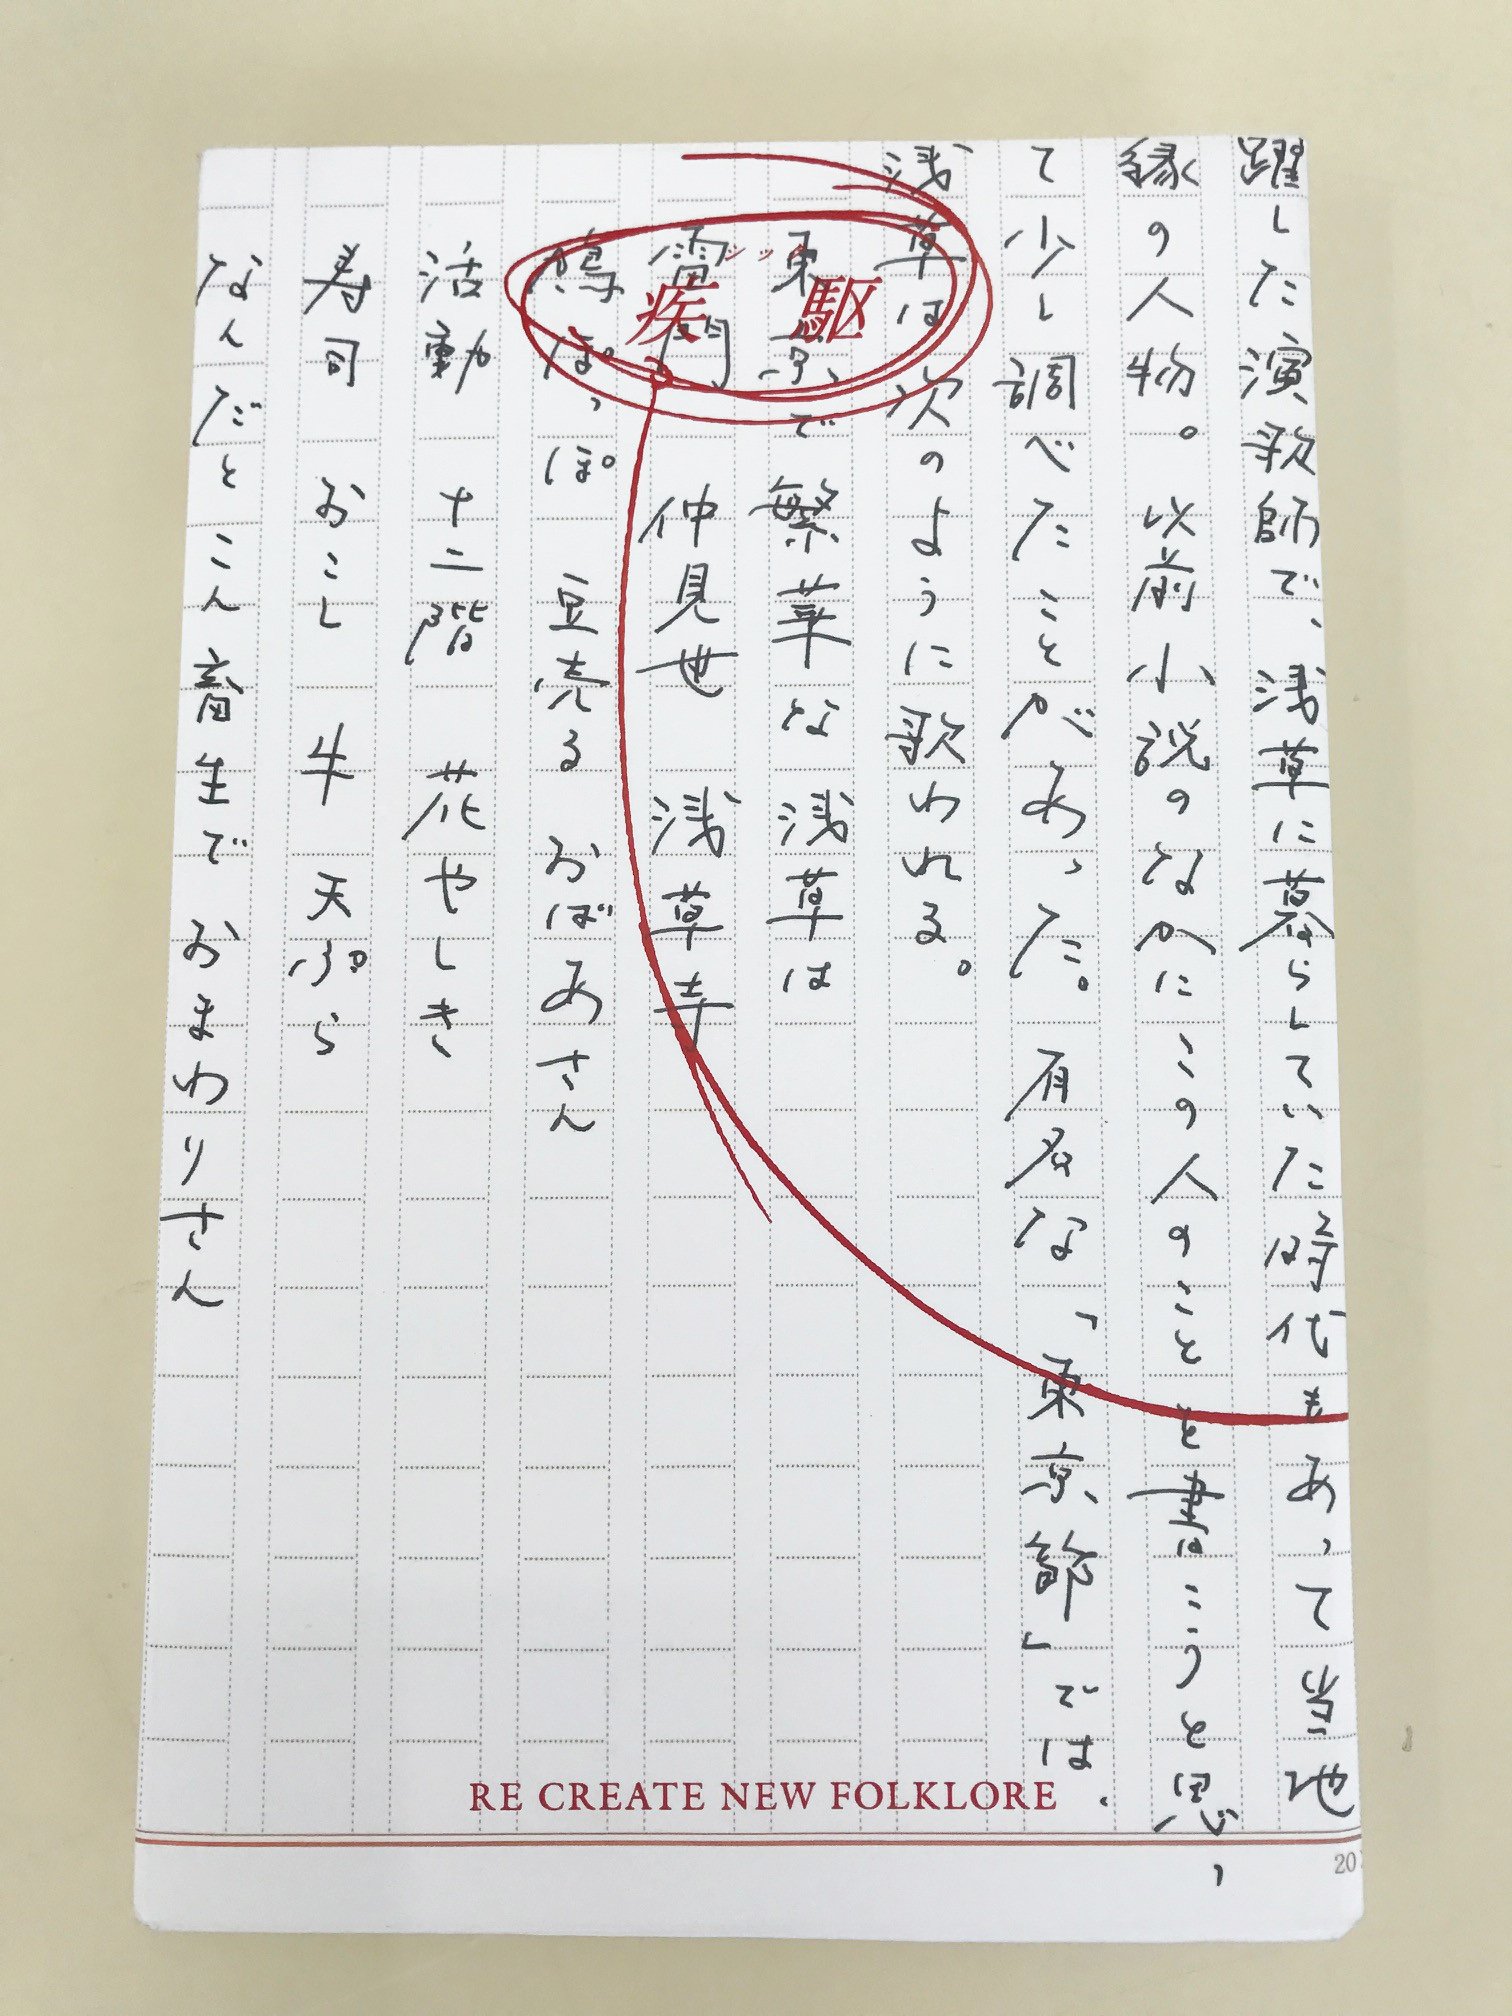 躍した演歌師で、浅草に暮らしていた時代もあって当地
縁の人物。以前小説のなかにこの人のことを書こうと思っ
て少し調べたことがあった。有名な「東京節」では、
浅草は次のように歌われる。
東京で繁華な浅草は
雷門 仲見世 浅草寺
鳩ぽっぽ 豆売る おばあさん
活動 十二階 花やしき
寿司 おこし 牛 天ぷら
なんだとこん畜生で おまわりさん
シック
疾駆
RE CREATE NEW FOLKLORE